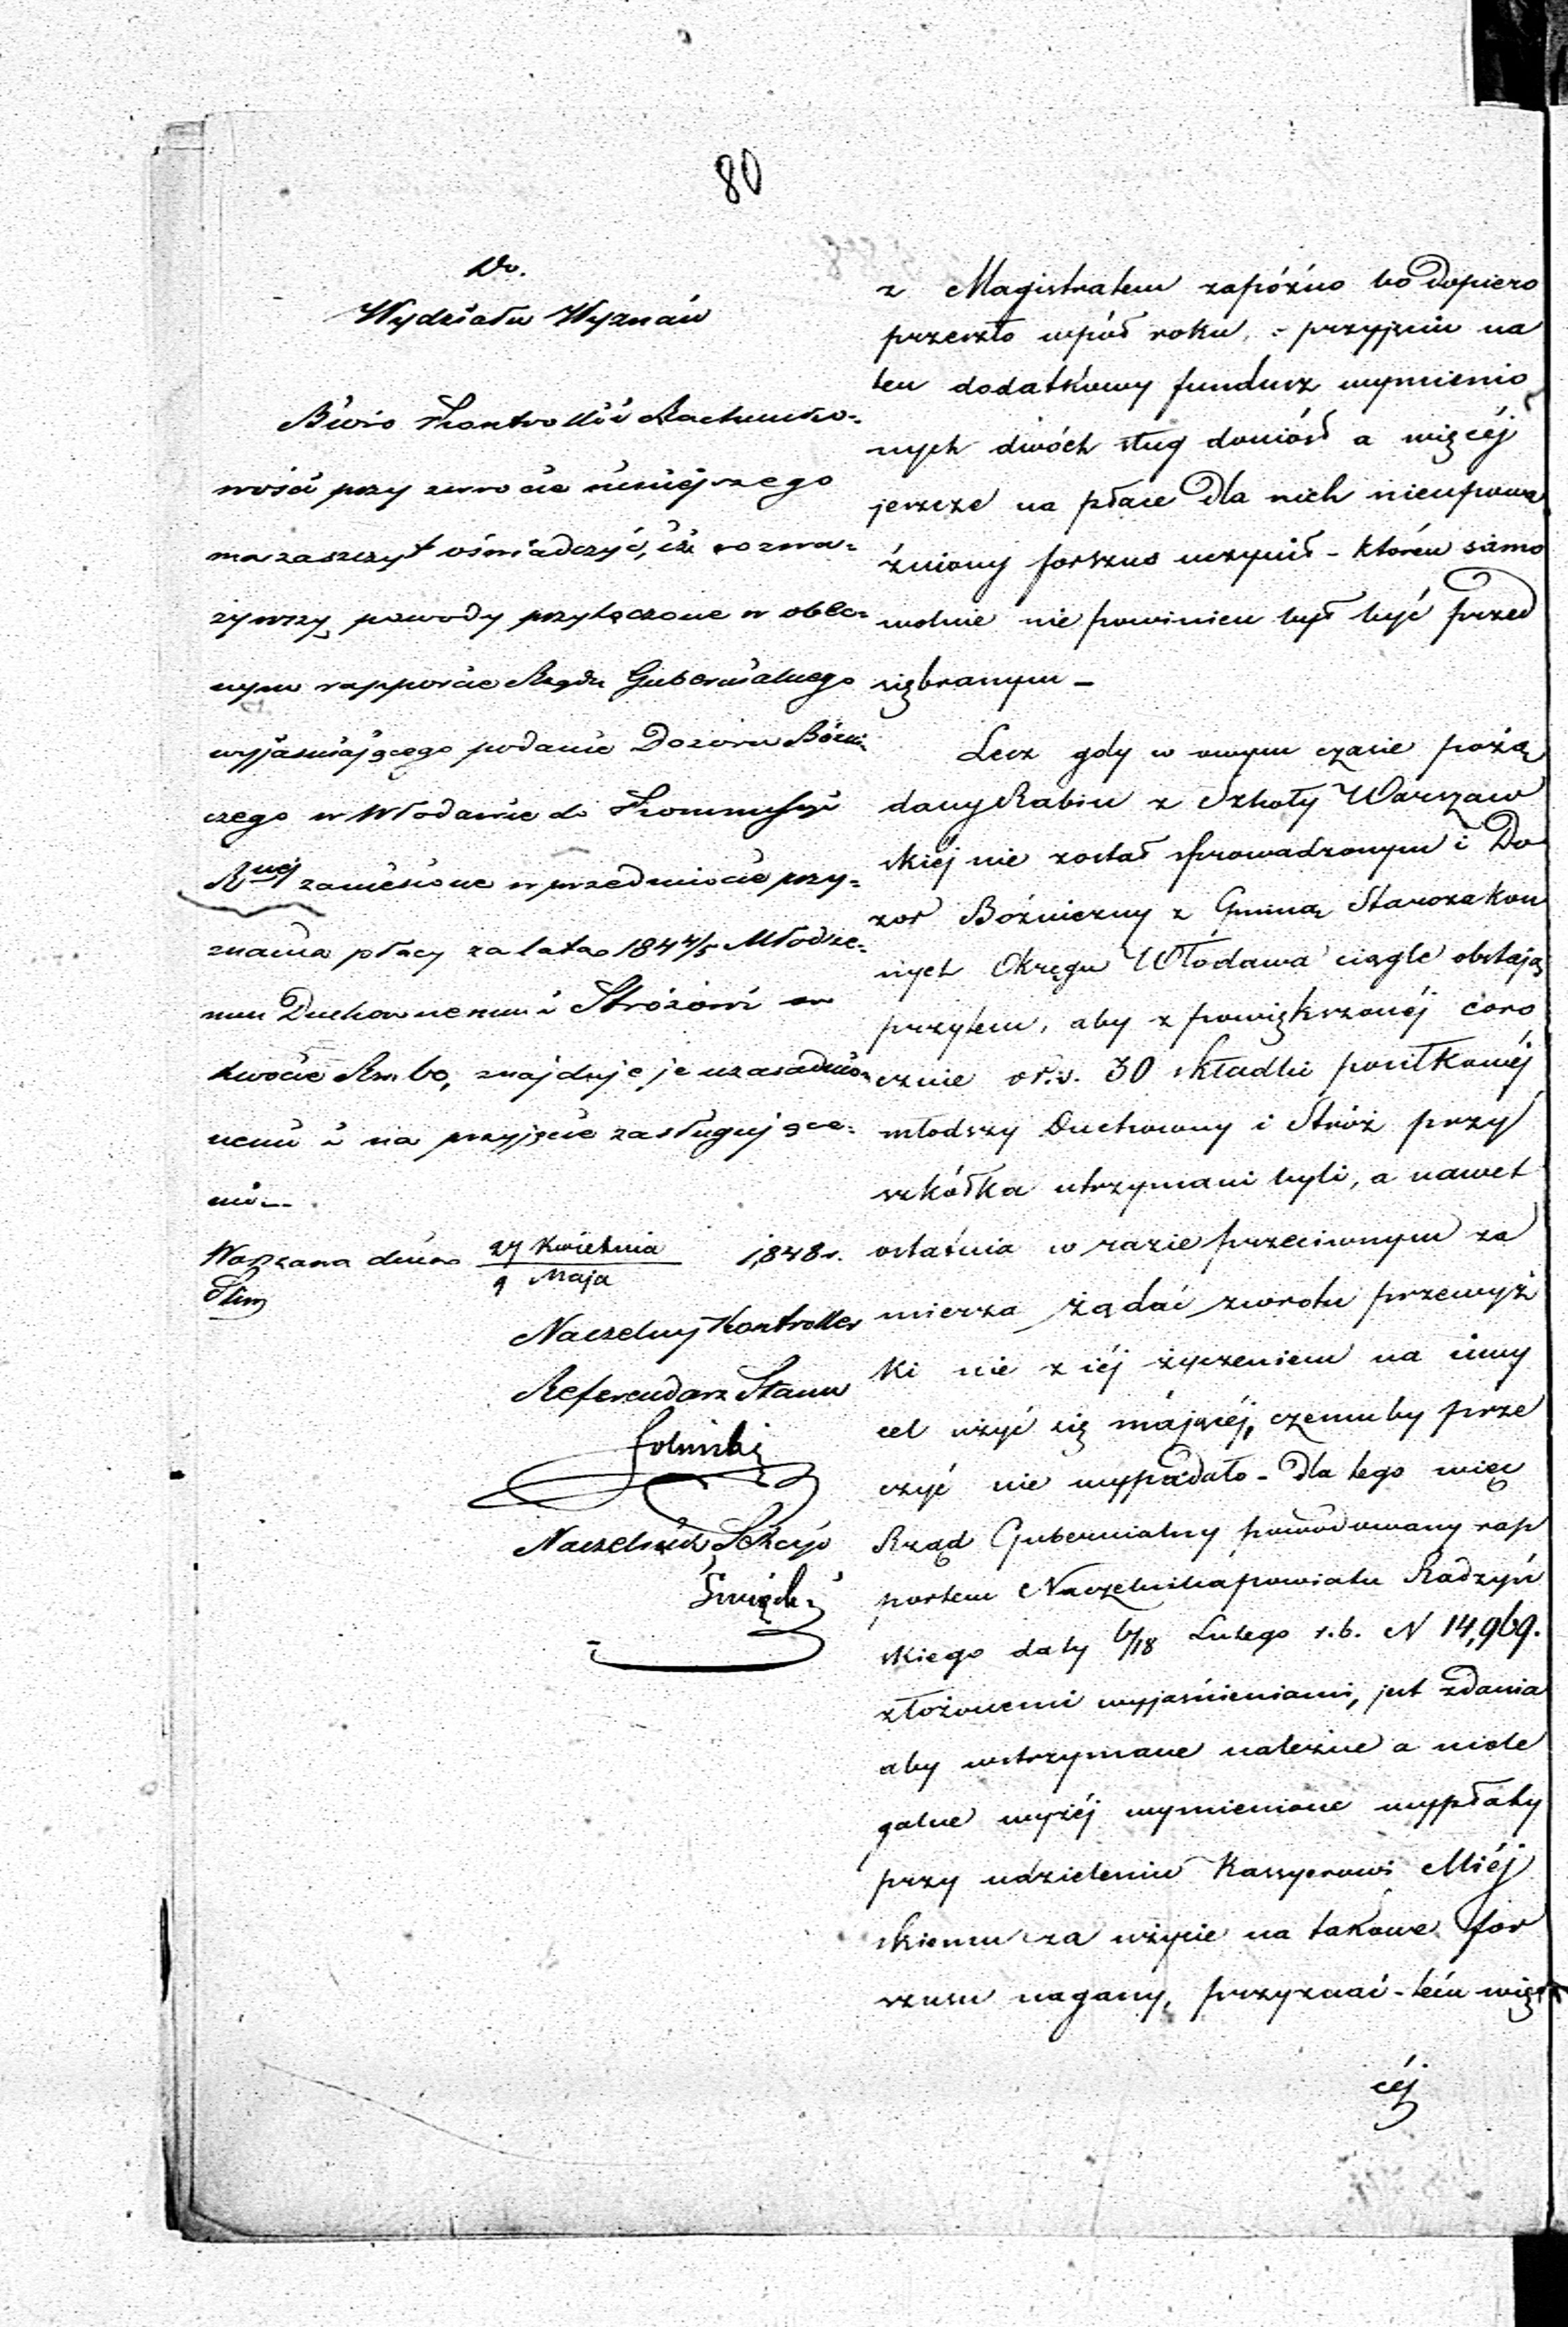 80
Do.
Wydziału Wyznań
Biuro Kontrolli i Rachunko=
wości przy zwrocie niniejszego
ma zaszczyt oświadczyć, iż rozwa=
żywszy powody przytoczone w obec=
nym rapporcie Rządu Gubernialnego
wyjaśniającego podanie Dozoru Bóżni=
czego w Włodawie do Kommissyi
Rwéj zaniesione w przedmiocie przy=
znania płacy za lata 184 4/5 Młodsze=
mu Duchownemu i Stróżowi w
kwocie Rs. 60, znajduje je uzasadnio=
nemi i na przyjęcie zasługujące=
mi.—
Warszawa dnia 27 Kwietnia / 9 Maja 1848 r.
Naczelny Kontroller
Referendarz Stanu
Naczelnik Sekcyi
z Magistratem zapóźno bo dopiero
przeszło wpół roku, - przyjęciu na
ten dodatkowy fundusz wymienio
nych dwóch sług doniósł a więcéj
jeszcze na płace dla nich nieupowa
żniony forszus uczynił - którén samo
wolnie nie powinien był być przed
siębranym —
Lecz gdy w owym czasie pożą
dany Rabin z Szkoły Warszaw
skiéj nie został sprowadzonym i Do
zór Bóżniczny z Gminą Starozakon
nych Okręgu Włodawa ciągle obstają
przytem, aby z powiększonéj coro
cznie o r.s. 30 składki posiłkowéj
młodszy Duchowny i Stróż przy
szkółka utrzymani byli, a nawet
ostatnia w razie przeciwnym za
mierza żądać zwrotu przewyż
ki nie z iéj życzeniem na inny
cel użyć się mającéj, czemuby prze
czyć nie wypadało - Dla tego więc
Rząd Gubernialny powodowany rap
portem Naczelnika powiatu Radzyń
skiego daty 6/18 Lutego r.b. N 14,969.
złożonemi wyjaśnieniami, jest zdania
aby wstrzymane należne a niele
galne wyżéj wymienione wypłaty
przy udzieleniu Kassyerowi Miéj
skiemu za użycie na takowe for
szusu nagany, przyznać - tém wię
céj